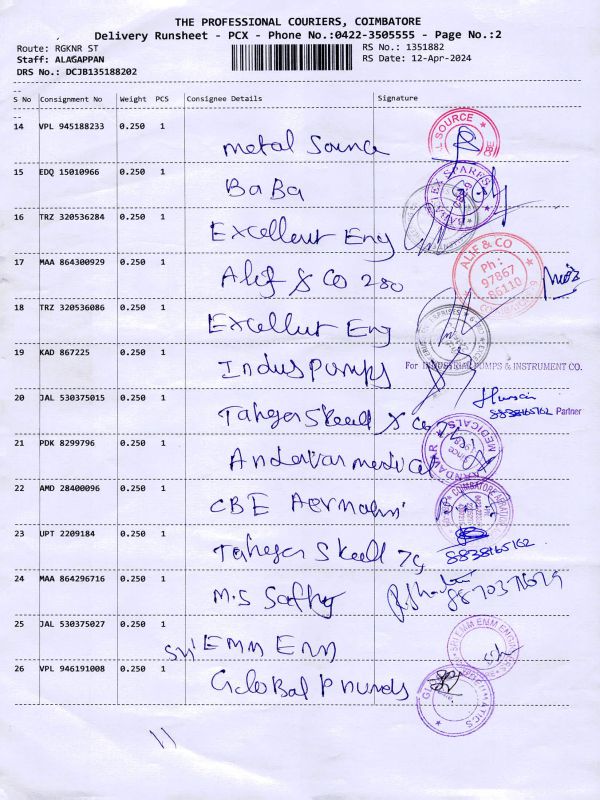 THE PROFESSIONAL COURIERS, COIMBATORE
Delivery Runsheet - PCX - Phone No.:0422-3505555 - Page No.:2
Route: RGKNR ST RS No.: 1351882
Staff: ALAGAPPAN RS Date: 12-Apr-2024
DRS No.: DCJB135188202
S No Consignment No Weight PCS Consignee Details Signature
14 VPL 945188233 0.250 1
Metal Source
L SOURCE CBE
15 EDQ 15010966 0.250 1
BaBa
EX SPARES
16 TRZ 320536284 0.250 1
Excellent Eng
17 MAA 864300929 0.250 1
Alif & Co 280
ALIF & CO
Ph :
97867
86110
COIMBATORE
18 TRZ 320536086 0.250 1
Excellent Eng
19 KAD 867225 0.250 1
Indus Pumps
For INDUSTRIAL PUMPS & INSTRUMENT CO.
20 JAL 530375015 0.250 1
Partner
8838165162
& Co
21 PDK 8299796 0.250 1
Andavar medical
MEDICALS
22 AMD 28400096 0.250 1
CBE
COIMBATORE
23 UPT 2209184 0.250 1
8838165162
24 MAA 864296716 0.250 1
M.S
25 JAL 530375027 0.250 1
Sri EMM Enn
SRI EMM ENN
26 VPL 946191008 0.250 1
Global